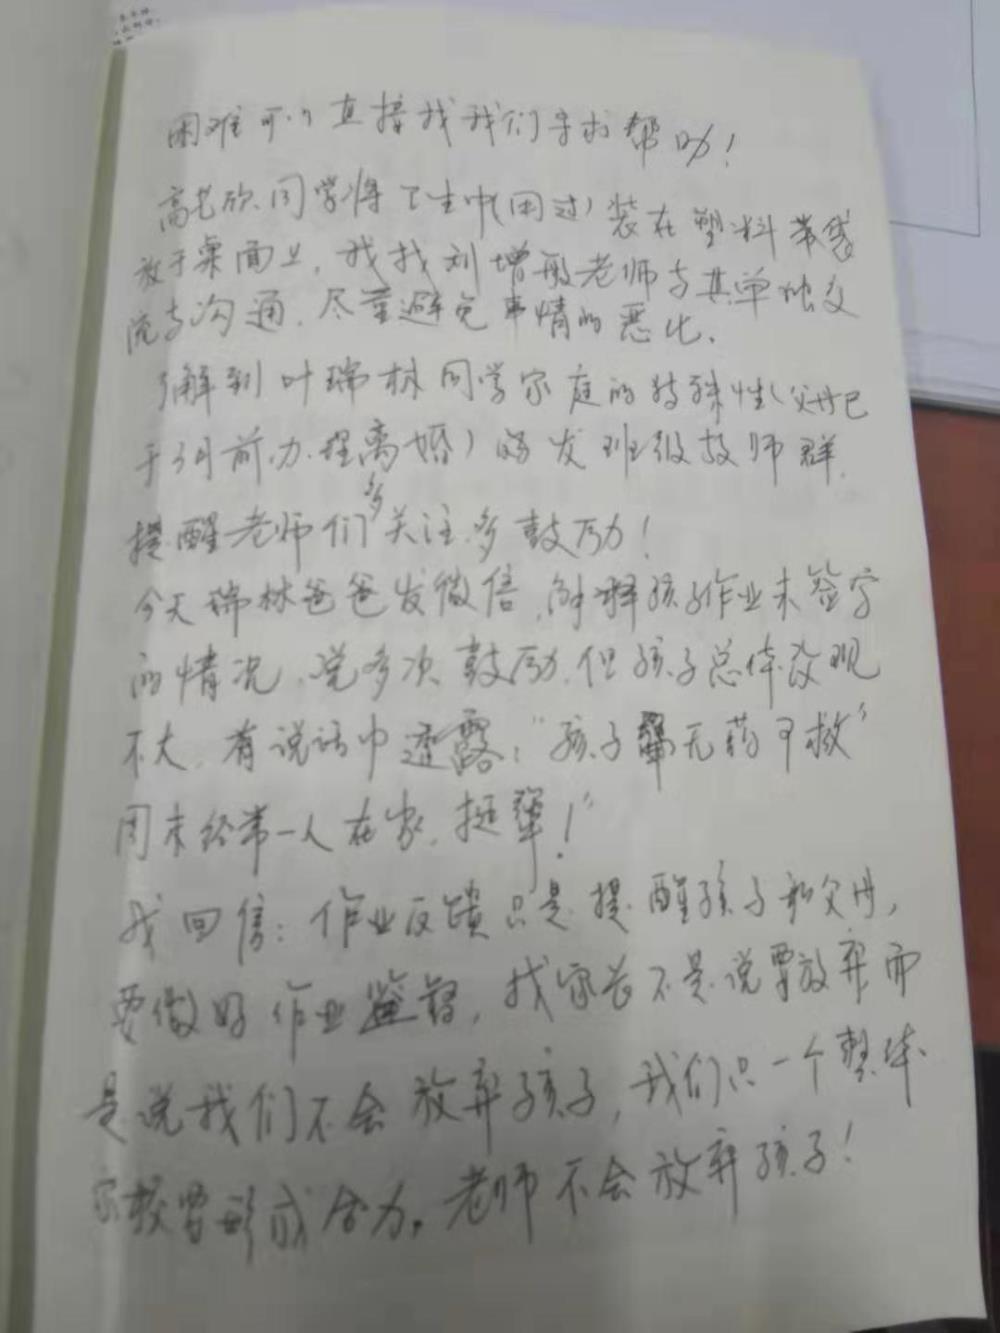 困难可以直接找我们寻求帮助！
高艺欣同学将卫生巾(用过)装在塑料带袋
放于桌面上，我找刘增般老师与其单独交
流与沟通，尽量避免事情的恶化。
了解到叶瑞林同学家庭的特殊性(父母已
于3月前办理离婚)的发班级教师群，
提醒老师们多关注多鼓励！
今天瑞林爸爸发微信，解释孩子作业未签字
的情况，说多次鼓励，但孩子总体改观
不大，有说话中透露："孩子 无药可救"
周末经常一人在家，挺犟！"
我回信：作业反馈只是提醒孩子和父母，
要做好作业监督，找家长不是说要放弃而
是说我们不会放弃孩子，我们只一个整体
家校要形成合力。老师不会放弃孩子！